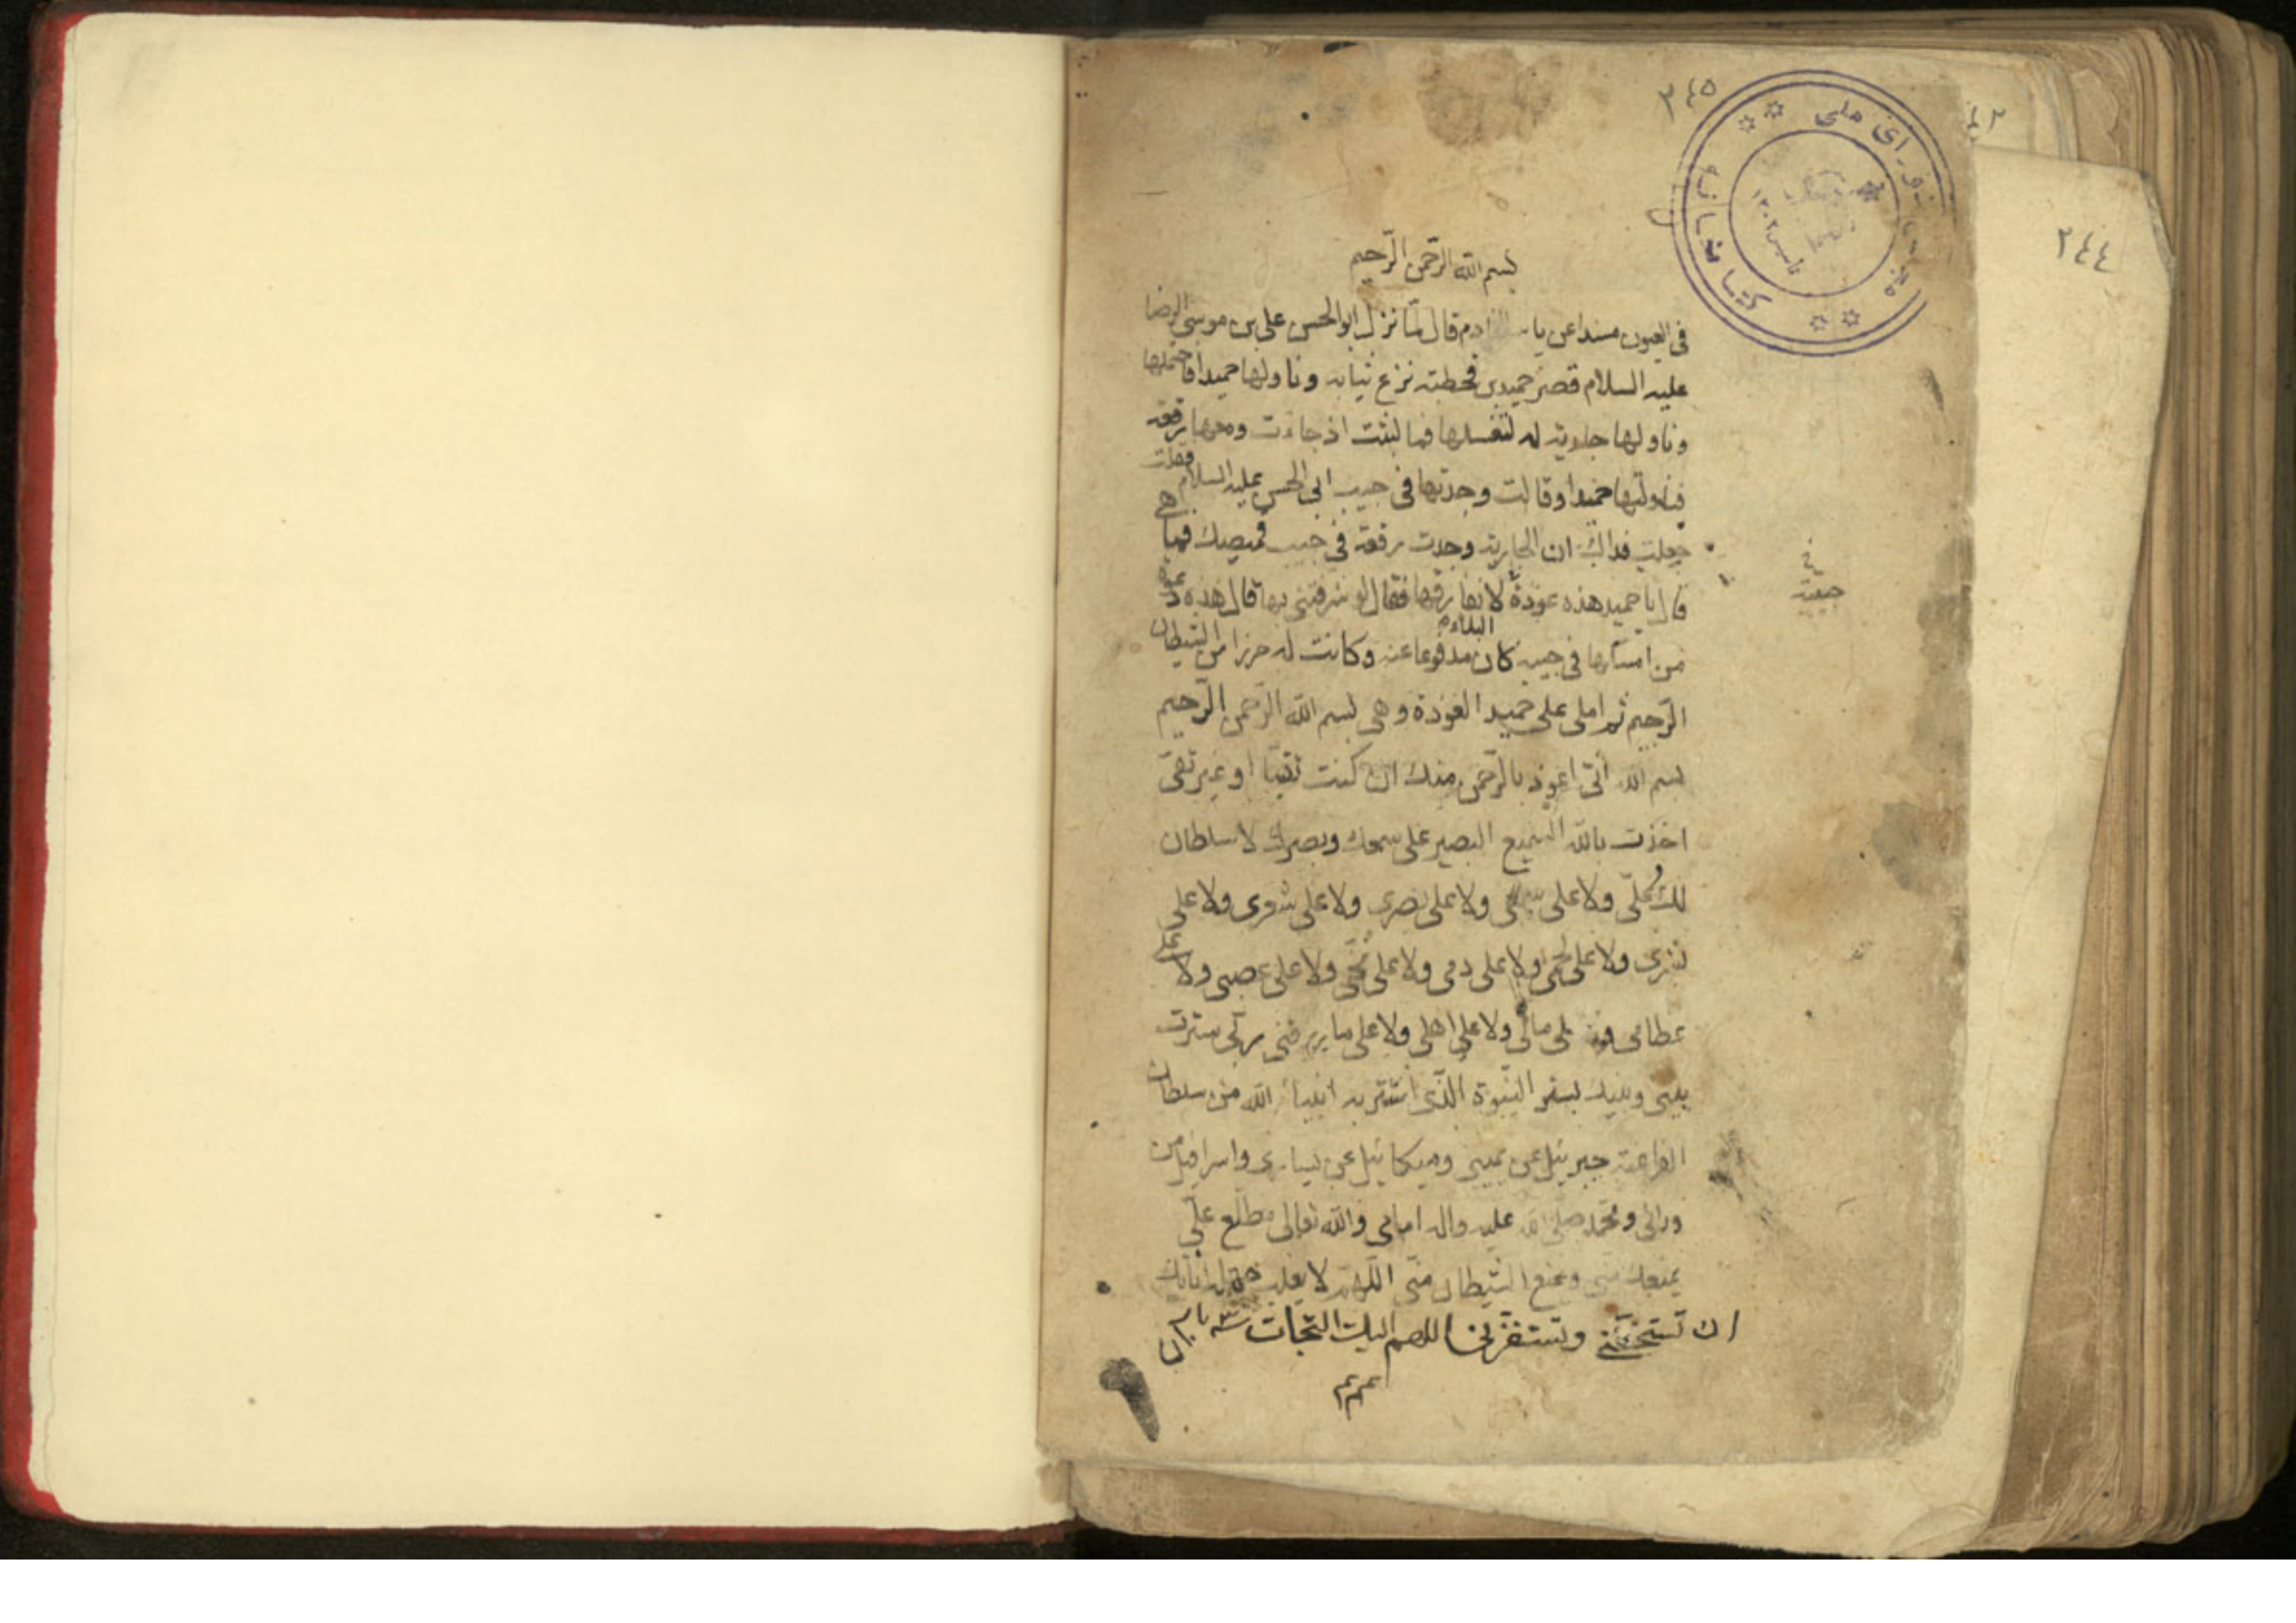 ٢٤٥
٢٤٤
کتابخانه مجلس شورای ملی
تأسیس ١٣٠٢
بسم الله الرّحمن الرّحيم
فى العيون مسندا عن ياسر الخادم قال لمّا نزل ابو الحسن على بن موسى الرضا
عليه السلام قصر حميد بن قحطبة نزع ثيابه وناولها حميدا فاحتملها
وناولها جارية له لتغسلها فما لبثت اذ جاءت ومعها رقعة
فناولتها حميدا وقالت وجدتها فى جيب ابى الحسن عليه السلام فقلت
جعلت فداك ان الجارية وجدت رقعة فى جيب قميصك فما هى
قال يا حميد هذه عوذة لا نفارقها فقال لو شرفتنى بها قال هذه عوذة
من امسكها فى جيبه كان البلاء مدفوعا عنه وكانت له حرزا من الشيطان
الرّجيم ثم املى على حميد العوذة وهى بسم الله الرّحمن الرّحيم
بسم الله انّى اعوذ بالرّحمن منك ان كنت تقيّا او غير تقىّ
اخذت بالله السميع البصير على سمعك وبصرك لا سلطان
لك علىّ ولا على سمعى ولا على بصرى ولا على شعرى ولا على
بشرى ولا على لحمى ولا على دمى ولا على مخّى ولا على عصبى ولا على
عظامى ولا على مالى ولا على اهلى ولا على ما رزقنى ربّى سترت
بينى وبينك بستر النّبوّة الّذى استتر به انبياء الله من سلطان
الفراعنة جبرئيل عن يمينى وميكائيل عن يسارى واسرافيل من
ورائى ومحمّد صلّى الله عليه واله امامى والله تعالى مطّلع علىّ
يمنعك منّى ويمنع الشّيطان منّى اللّهمّ لا يغلب جهله اناتك
ان يستخفّنى ويستفزّنى اللهم اليك التجأت